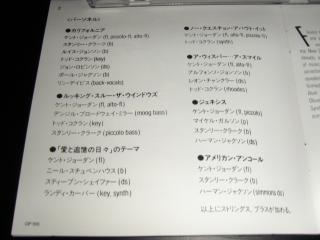 2
<パーソネル>
●カリフォルニア
ケント・ジョーダン (fl, piccolo-fl, alto-fl)
スタンリー・クラーク (b)
ルイス・ジョンソン (b)
トッド・コクラン (key)
ジョン・ロビンソン (ds)
ポール・ジャクソン (b)
リン・デイビス (back-vocals)
●ルッキング・スルー・ザ・ウインドウズ
ケント・ジョーダン (fl, alto-fl)
デンジル・ブロードウェイ・ミラー (moog bass)
トッド・コクラン (key)
スタンリー・クラーク (piccolo bass)
●「愛と追憶の日々」のテーマ
ケント・ジョーダン (fl)
ニール・スチュベンハウス (b)
スティーブン・シェイファー (ds)
ランディ・カーバー (key, synth)
●ノー・クエスチョン・アバウト・イット
ケント・ジョーダン (fl, alto-fl, piccolo-fl)
トッド・コクラン (synth)
●ア・ウィスパー・ア・スマイル
ケント・ジョーダン (fl, alto-fl)
アルフォンソ・ジョンソン (b)
レオン・チャンスラー (ds)
トッド・コクラン (rhodes)
●ジェネシス
ケント・ジョーダン (fl, piccolo)
マイケル・ガルソン (p)
スタンリー・クラーク (b)
ハーマン・ジャクソン (ds)
●アメリカン・アンコール
ケント・ジョーダン (fl)
スタンリー・クラーク (b)
ハーマン・ジャクソン (simmons ds)
以上にストリングス、ブラスが加わる。